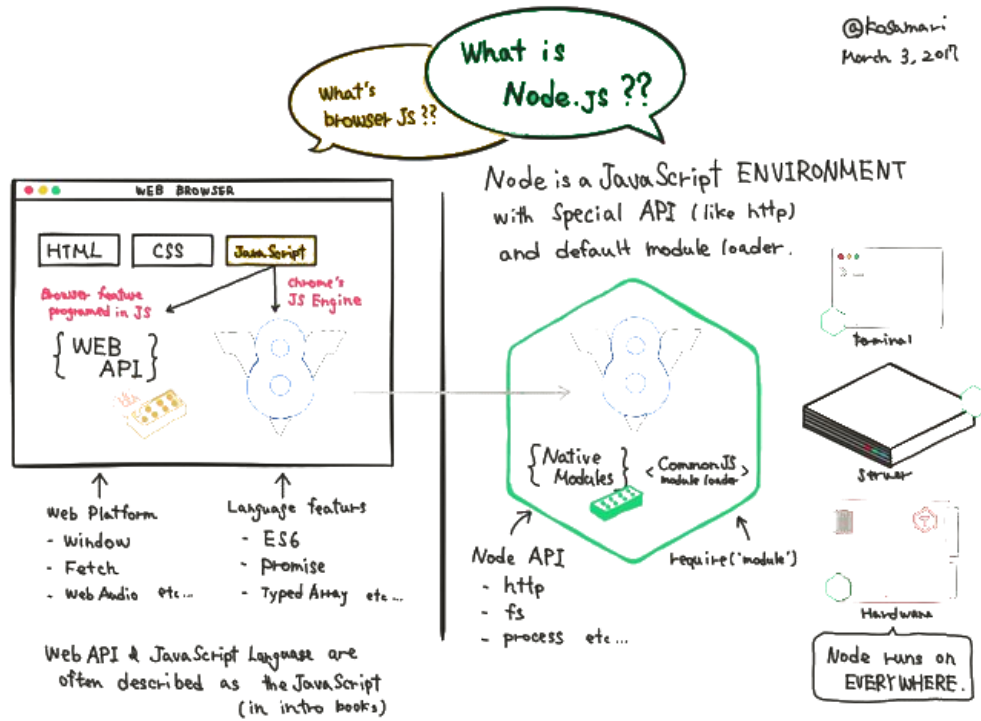 @kosamari
March 3, 2017
What is
Node.js ??
What's
browser Js ??
WEB BROWSER
HTML
CSS
JavaScript
Browser feature
programed in JS
Chrome's
JS Engine
{ WEB
API }
Web Platform
- Window
- Fetch
- Web Audio etc...
Language featurs
- ES6
- Promise
- Typed Array etc...
Web API & JavaScript Language are
often described as the JavaScript
(in intro books)
Node is a JavaScript ENVIRONMENT
with Special API (like http)
and default module loader.
{ Native
Modules }
< CommonJS
module loader >
Node API
- http
- fs
- process etc...
require('module')
terminal
Server
Hardware
Node runs on
EVERYWHERE.